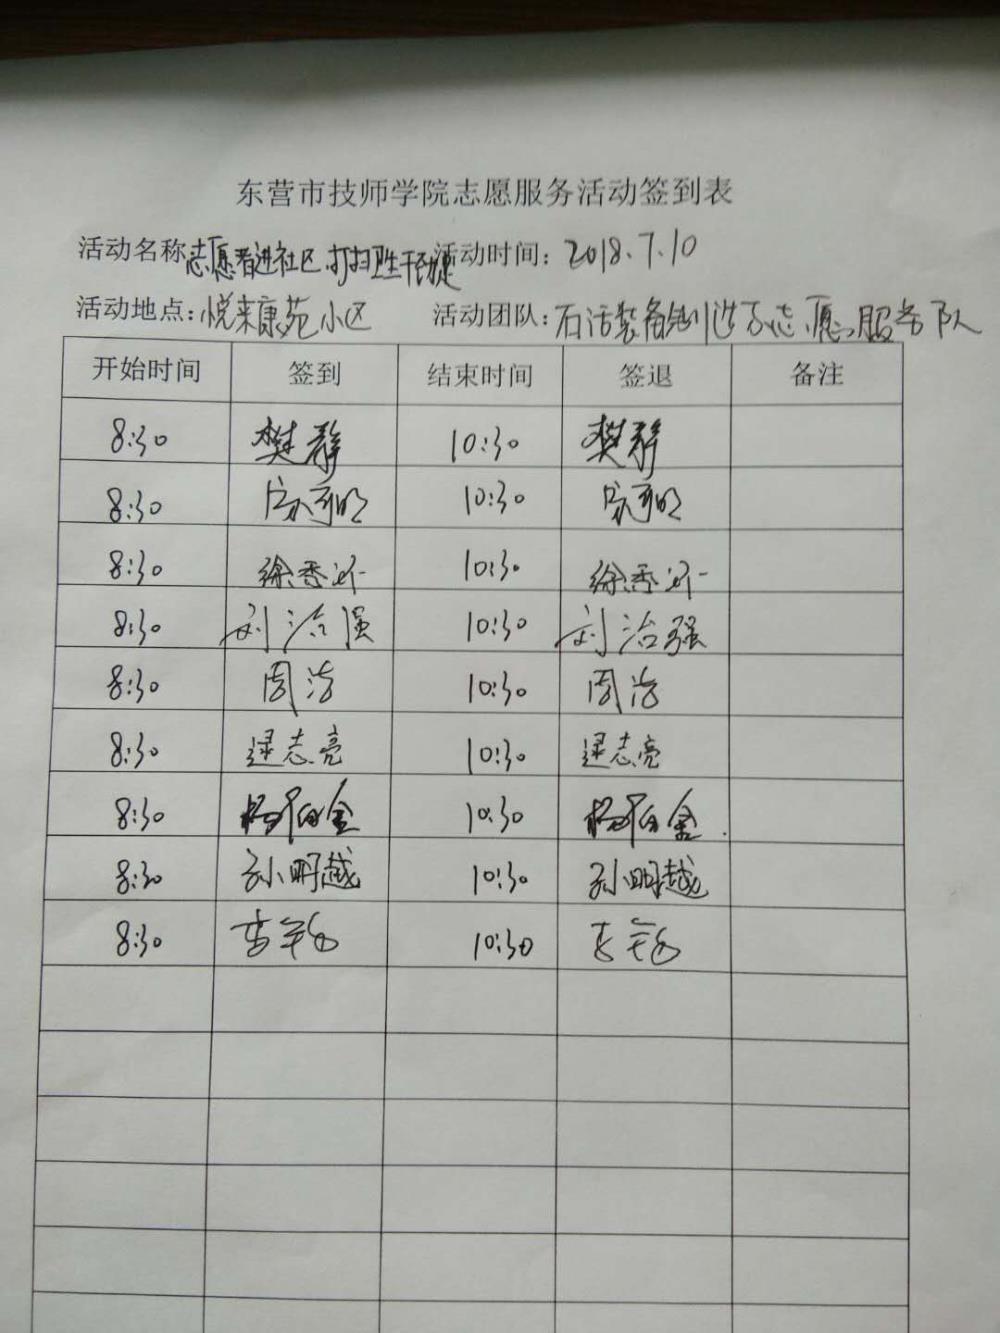 东营市技师学院志愿服务活动签到表
活动名称 志愿者进社区 打扫卫生 活动时间：2018.7.10
活动地点：悦来康苑小区 活动团队：石活装备制造系志愿服务队
开始时间 签到 结束时间 签退 备注
8:30 樊静 10:30 樊静
8:30 10:30
8:30 徐香 10:30 徐香
8:30 刘治强 10:30 刘治强
8:30 周 10:30 周
8:30 逯志亮 10:30 逯志亮
8:30 杨 金 10:30 杨 金
8:30 孙明越 10:30 孙明越
8:30 李 10:30 李